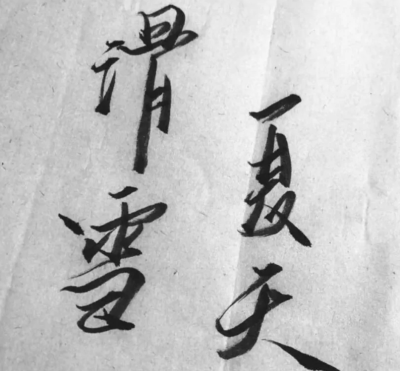 夏天
滑雪